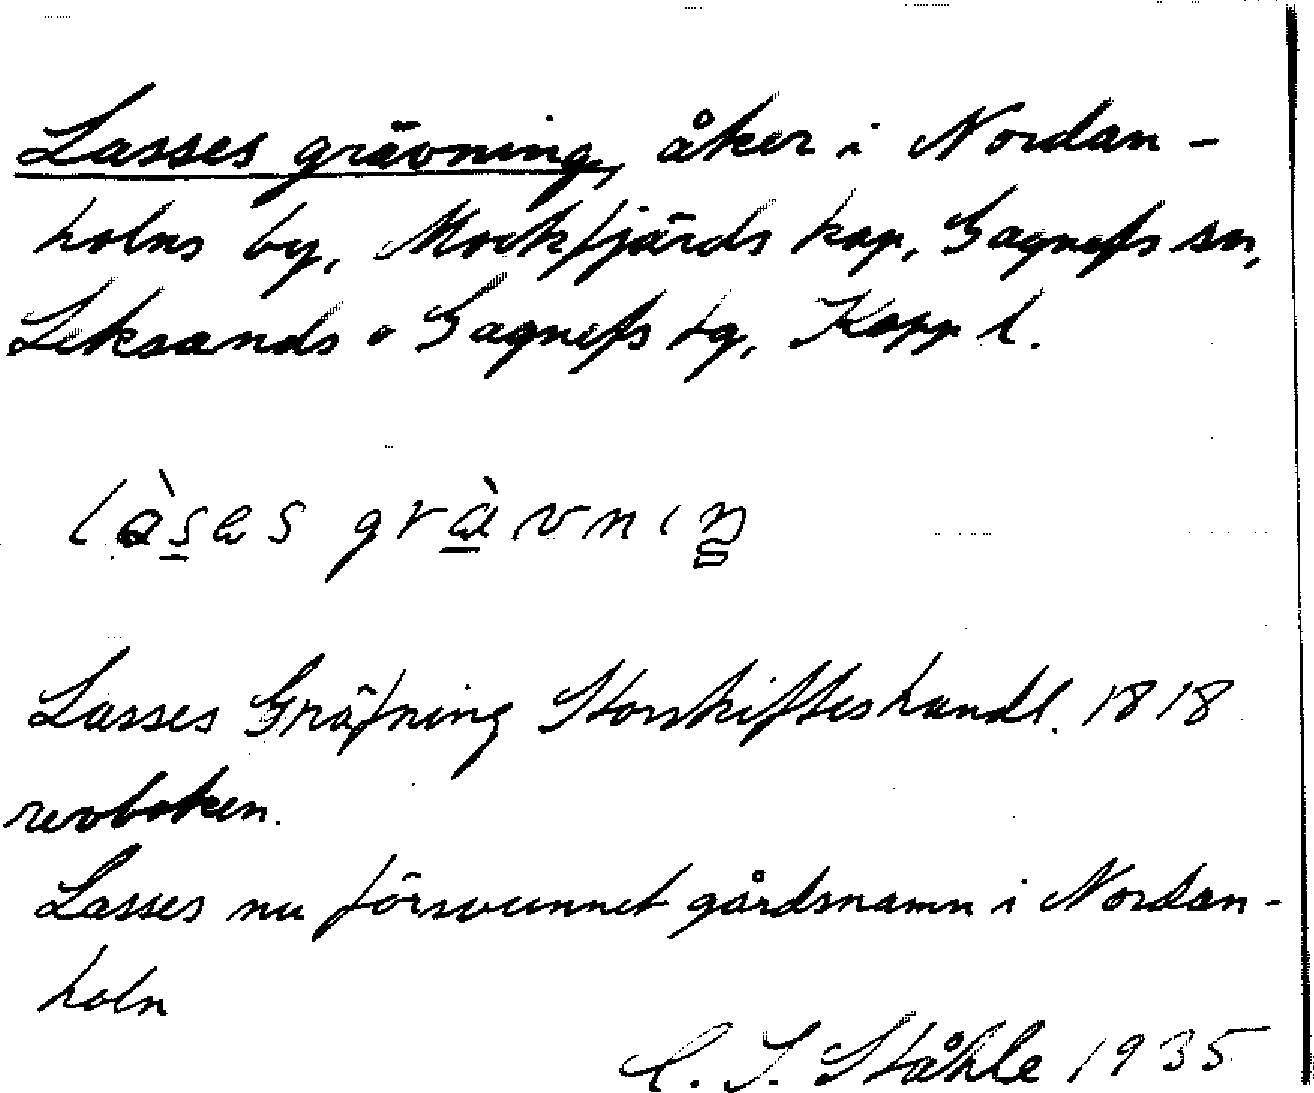 Lasses grävning, åker i Nordan-
holns by, Mockfjärds kap, Gagnefs sn,
Leksands o Gagnefs tg, Kopp l.
làses gràvnıŋ
Lasses Gräfning Storskifteshandl. 1818
revboken.
Lasses nu försvunnet gårdsnamn i Nordan-
holn
C. I. Ståhle 1935